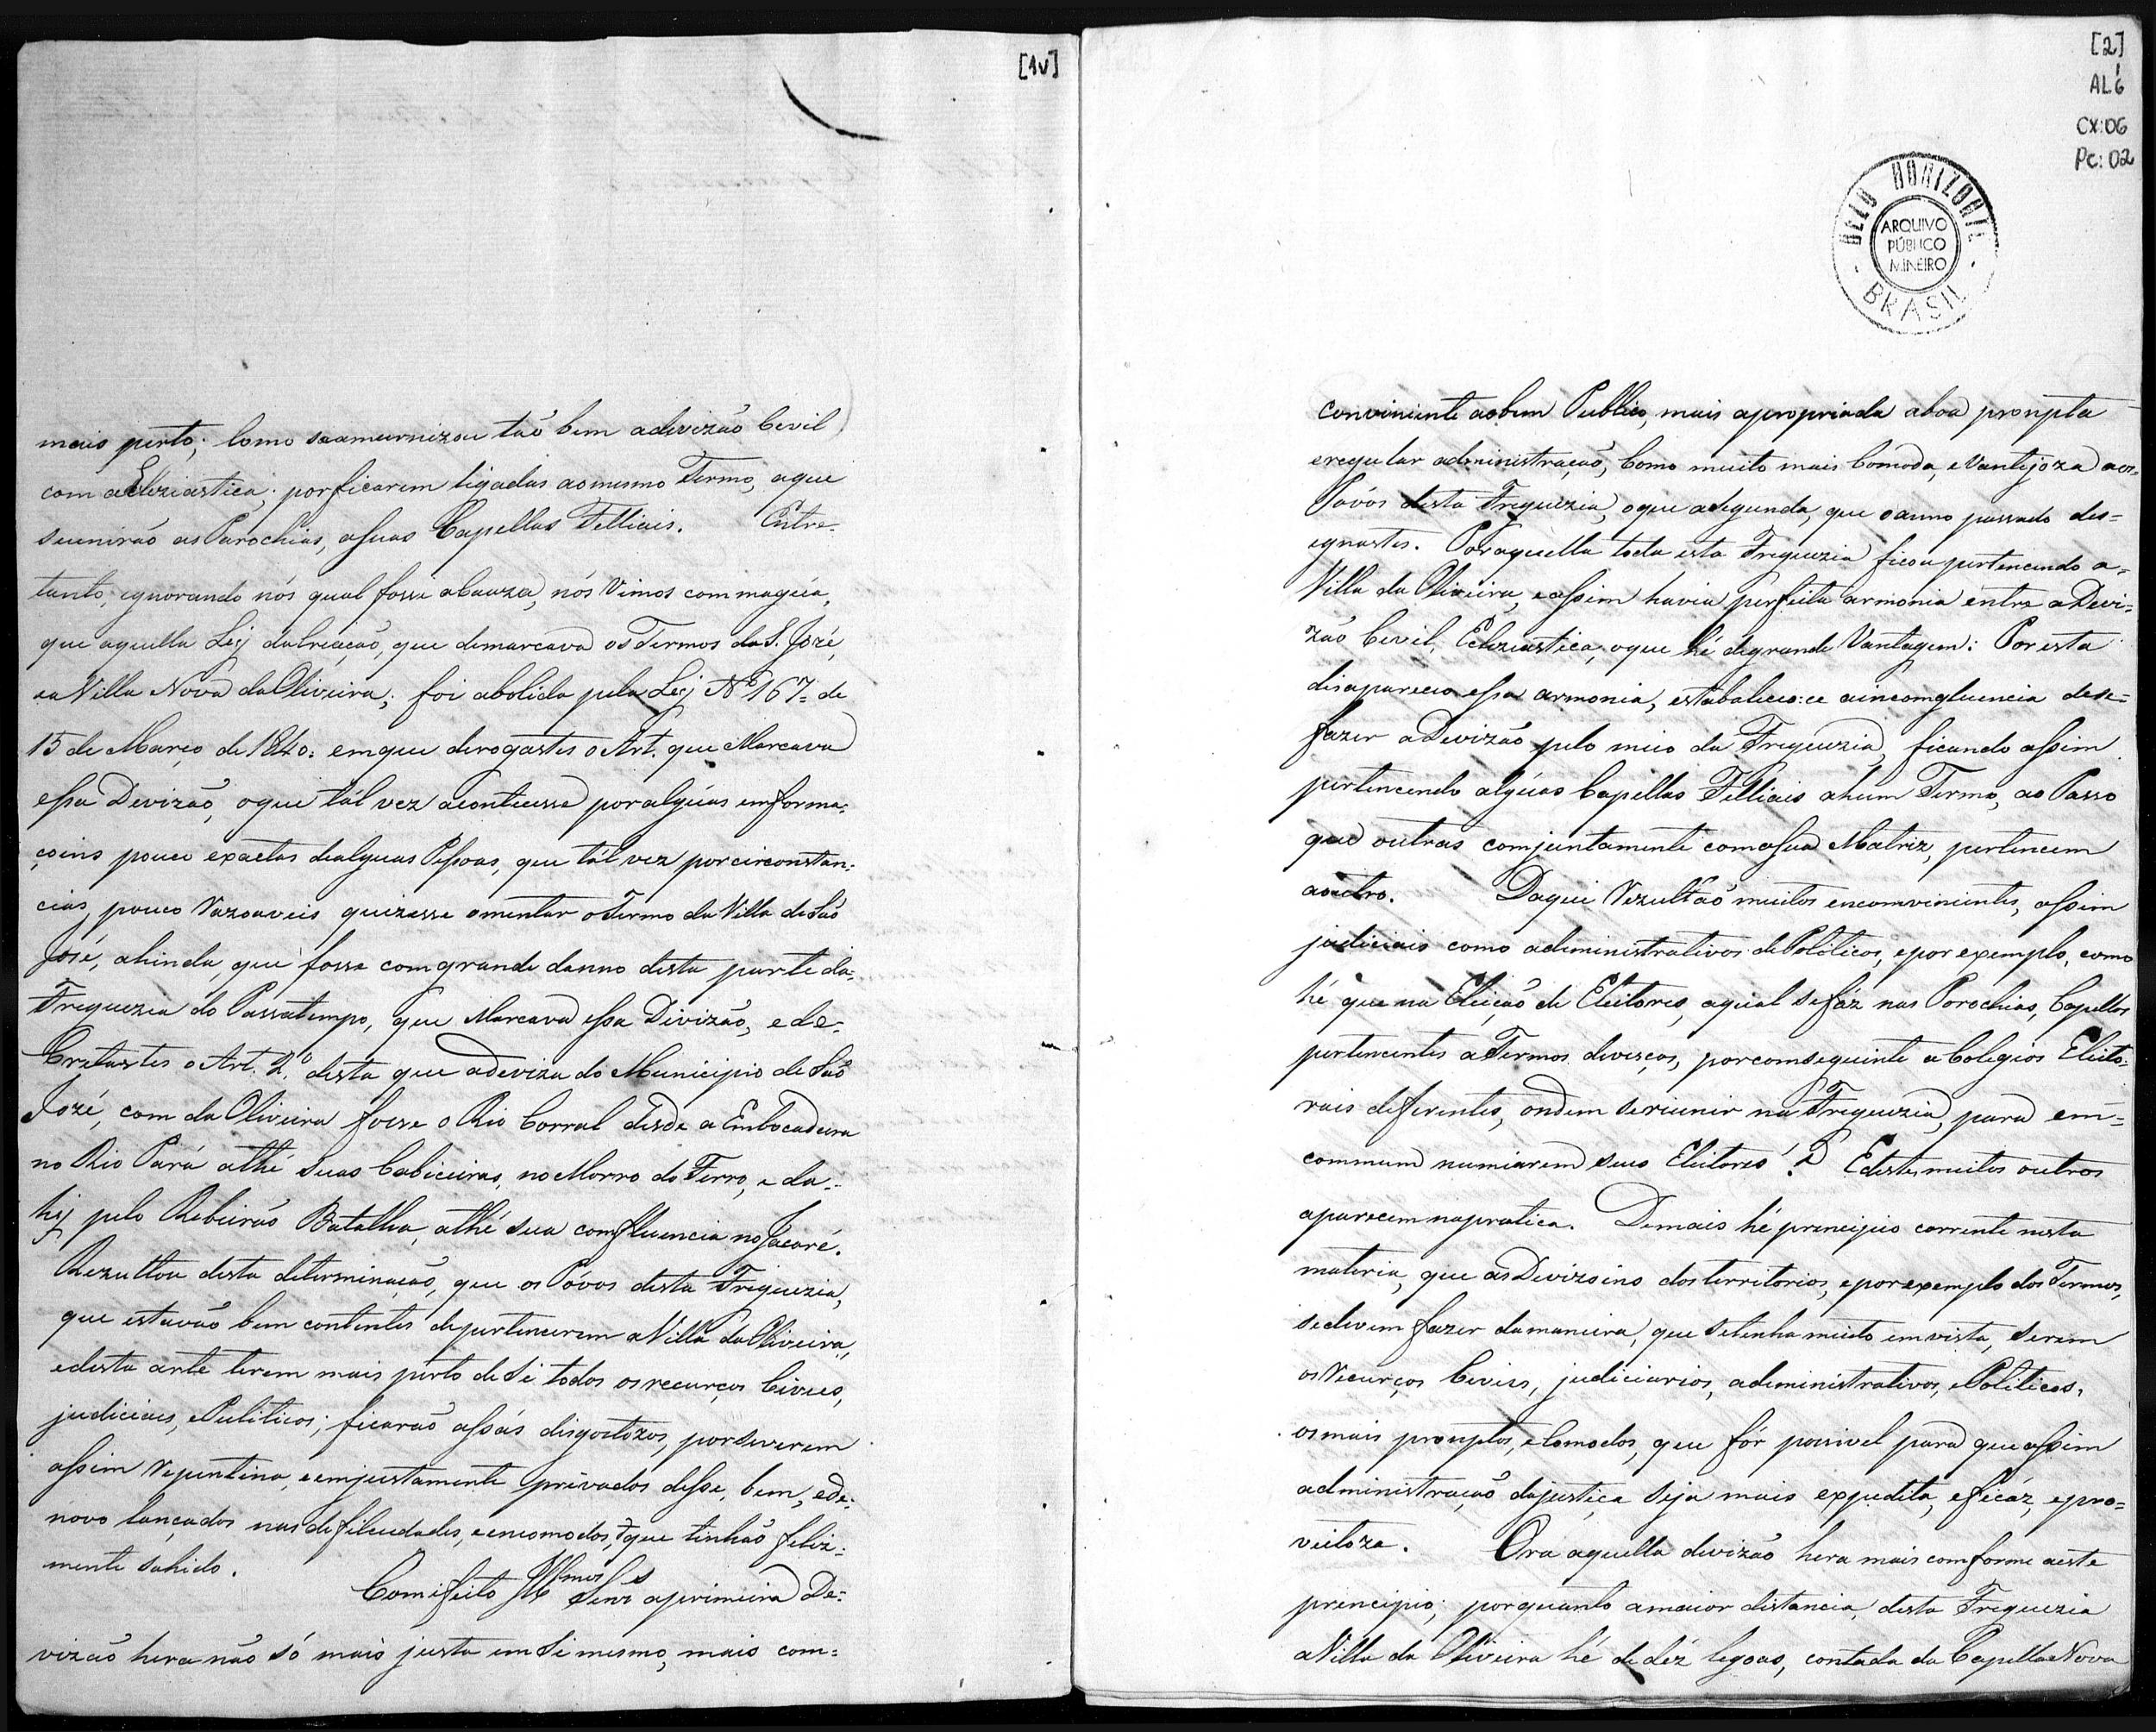 [1v]
mais perto; como seamurnizou taõ bem adivizaõ Cevil
com aEcleziastica; porficarem ligadas aomesmo Termo, aque
seunirão as Parochias, asuas Capellas Felliais. Entre-
tanto, egnorando nós qual fosse aCauza, nós Vimos com magúa,
que aquella Ley daCreaçaõ, que demarcava os Termos de S. Jozé,
ea Villa Nova daOliveira; foi abolida pela Ley Nº 167 de
15 de Março de 1840: emque derogastes o Art. que Marcava
essa Devizaõ, oque tál vez acontecesse poralgúas emforma-
çoins pouco exactas dealguas Pessoas, que tál vez porcirconstan-
cias, pouco Razoaveis quizesse omentar oTermo da Villa de São
José, ahinda que fosse comgrande danno desta parte da
Freguezia do Passatempo, que Marcava essa Divizão, e de-
Cretastes o Art. 2.º desta que adeviza do Municipio de São
Jozé, com da Oliveira fosse o Rio Corral desde a Embocadura
no Rio Pará athé suas Cabiceiras, no Morro do Ferro, e da-
hy pelo Rebeirão Batalha, athé sua comfluencia no Jacaré.
Rezultou desta determinaçaõ, que os Póvos desta Freguezia,
que estavaõ bem contentes depertencerem a Villa da Oliveira,
edesta arte terem mais perto de Si todos os recurços Civies,
judiciaes, ePuliticos; ficaraõ assás disgostozos, porseverem
assim Repentina, eemjustamente privados desse, bem, ede-
novo lançados nas defilcudades, eencomodos, dque tinhaõ feliz-
mente sahido.
Comefeito Illmos Senrs aprimeira De-
vizaõ hera naõ só mais justa em Si mesmo, mais com-
[2]
AL 6
CX:06
Pc: 02
BELO HORIZONTE
ARQUIVO
PÚBLICO
MINEIRO
BRASIL
conviniente aobem Publico, mais apropriada aboa prompta
eregular administraçaõ, Como muito mais Cómoda, eVantejoza aos
Povós desta Freguezia, oque asegunda, que oanno passado des-
egnastes. Poraquella toda esta Freguezia ficou pertencendo a
Villa da Oliveira, eassim havia perfeita armonia entre a Devi-
zão Cevil, Ecleziastica, oque hé degrande Vantagem: Por esta
disapareceo essa armonia, estabaleceo:ce aincomgluencia dese-
fazer aDevizão pelo meio da Freguezia, ficando assim
pertencendo algúas Capellas Felliais ahum Termo, ao Passo
que outras comjuntamente comasua Matriz, pertencem
aoutro. Daqui Rezultaõ muitos encomvenientes, assim
judiciais como adeministrativos dePoliticos, eporexemplo, como
hé que na Eleiçaõ de Eleitores, aqual sefáz nas Parochias, Capellas
pertencentes aTermos deverços, porcomseguinte aColegios Eleito-
rais deferentes, ondem sereunir na Freguezia, para em-
commum numiarem seus Eleitores? Edeste, muitos outros
aparecem napratica. Demais hé prencipio corrente nesta
materia, que as Devizoins dos territorios, eporexemplo dos Termos,
sedevem fazer damaneira, que setenha muito emvista, serem
os Recurços Civies, judiciarios, adeministrativos, ePoliticos,
osmais promptos, eComodos, que fór possivel para que assim
administraçaõ dajustiça Seja mais expedita, eficáz, epro-
veitoza. Ora aquella devizão hera mais comforme aeste
prencipio; porquanto amaior distancia desta Freguezia
aVilla da Oliveira hé de déz legoas, contada da Capella Nova